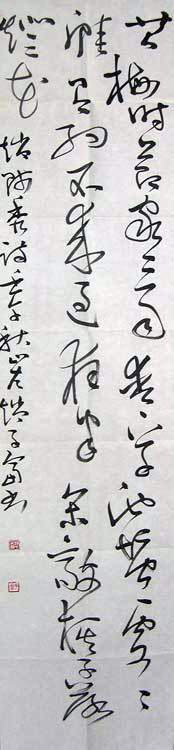 黄梅时节家家雨青草池塘处处
蛙有约不来过夜半闲敲棋子落
灯花
赵师秀诗壬午秋 赵子富书